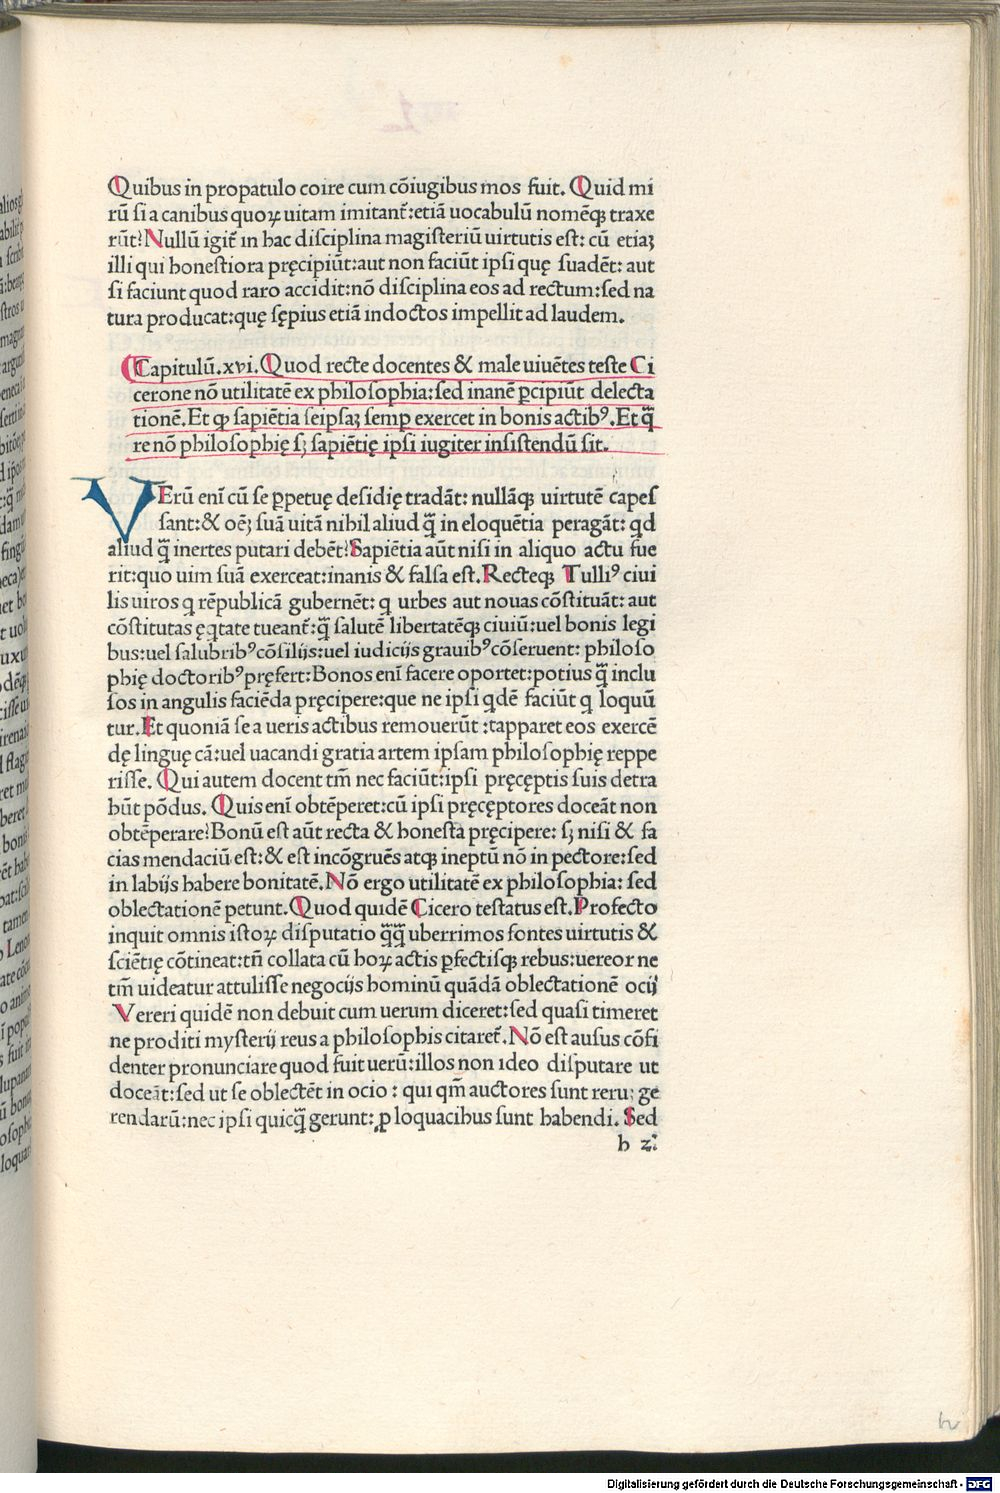 Quibus in propatulo coire cum cõiugibus mos fuit. Quid mi
rũ si a canibus quoꝝ uitam imitant᷑:etiã uocabulũ nomẽqꝫ traxe
rũt? Nullũ igit᷑ in hac disciplina magisteriũ uirtutis est: cũ etiaꝫ
illi qui honestiora pręcipiũt:aut non faciũt ipsi quę suadẽt: aut
si faciunt quod raro accidit:nõ disciplina eos ad rectum:sed na
tura producat:quę sępius etiã indoctos impellit ad laudem.
Capitulũ.xvi.Quod recte docentes & male uiuẽtes teste Ci
cerone nõ utilitatẽ ex philosophia:sed inanẽ ꝑcipiũt delecta
tionẽ.Et ꝙ sapiẽtia seipsaꝫ semꝑ exercet in bonis actibꝰ.Et q̃
re nõ philosophię sꝫ sapiẽtię ipsi iugiter insistendũ sit.
VErũ enĩ cũ se ꝑpetuę desidię tradãt: nullãqꝫ uirtutẽ capes
sant:& oẽꝫ suã uitã nihil aliud q̃ in eloquẽtia peragãt: qd
aliud q̃ inertes putari debẽt? Sapiẽtia aũt nisi in aliquo actu fue
rit:quo uim suã exerceat:inanis & falsa est. Recteqꝫ Tulliꝰ ciui
lis uiros q rẽpublicã gubernẽt: q urbes aut nouas cõstituãt: aut
cõstitutas ęqtate tueant᷑:q̃ salutẽ libertatẽqꝫ ciuiũ:uel bonis legi
bus:uel salubribꝰ cõsilijs:uel iudicijs grauibꝰ cõseruent: philoso
phię doctoribꝰ pręfert:Bonos enĩ facere oportet:potius q̃ inclu
sos in angulis faciẽda pręcipere:que ne ipsi qdẽ faciũt q loquũ
tur.Et quoniã se a ueris actibus remouerũt :tapparet eos exercẽ
dę linguę cã:uel uacandi gratia artem ipsam philosophię reppe
risse. Qui autem docent tm̃ nec faciũt:ipsi pręceptis suis detra
hũt põdus. Quis enĩ obtẽperet:cũ ipsi pręceptores doceãt non
obtẽperare? Bonũ est aũt recta & honesta pręcipere: sꝫ nisi & fa
cias mendaciũ est:& est incõgruẽs atqꝫ ineptũ nõ in pectore:sed
in labijs habere bonitatẽ. Nõ ergo utilitatẽ ex philosophia: sed
oblectationẽ petunt. Quod quidẽ Cicero testatus est. Profecto
inquit omnis istoꝝ disputatio q̃q̃ uberrimos fontes uirtutis &
sciẽtię cõtineat:tñ collata cũ hoꝝ actis ꝑfectisqꝫ rebus:uereor ne
tm̃ uideatur attulisse negocijs hominũ quãdã oblectationẽ ocij
Vereri quidẽ non debuit cum uerum diceret:sed quasi timeret
ne proditi mysterij reus a philosophis citaret᷑. Nõ est ausus cõfi
denter pronunciare quod fuit uerũ:illos non ideo disputare ut
doceãt:sed ut se oblectẽt in ocio : qui qm̃ auctores sunt reruꝫ ge
rendarũ:nec ipsi quicq̃ gerunt: ꝓ loquacibus sunt habendi. Sed
h 2
Digitalisierung gefördert durch die Deutsche Forschungsgemeinschaft - DFG